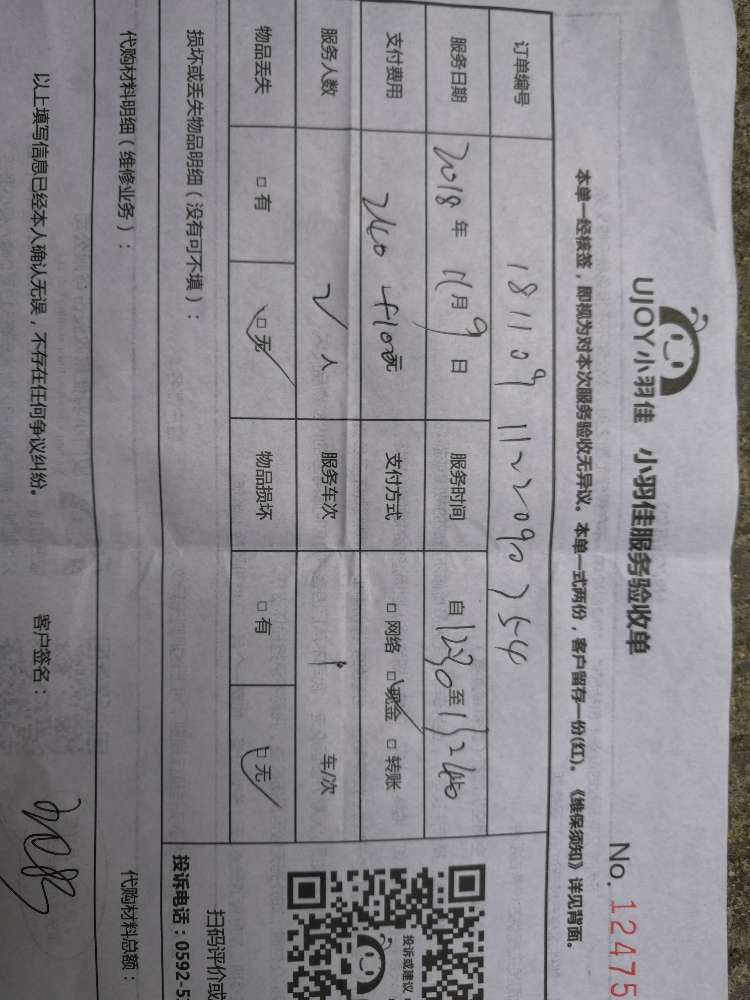 UJOY小羽佳 小羽佳服务验收单
No. 12475
本单一经核签，即视为对本次服务验收无异议。本单一式两份，客户留存一份(红)。《维保须知》详见背面。
订单编号
服务日期 2018年 11月 9日 服务时间 自 1230 至
支付费用 240 +10元 支付方式 □ 网络 □ 现金 □ 转账
服务人数 2 人 服务车次 1 车/次
物品丢失 □ 有 □ 无 物品损坏 □ 有 □ 无
损坏或丢失物品明细（没有可不填）：
投诉或建议
扫码评价或
投诉电话：0592-5
代购材料明细（维修业务）： 代购材料总额：
以上填写信息已经本人确认无误，不存在任何争议纠纷。 客户签名：